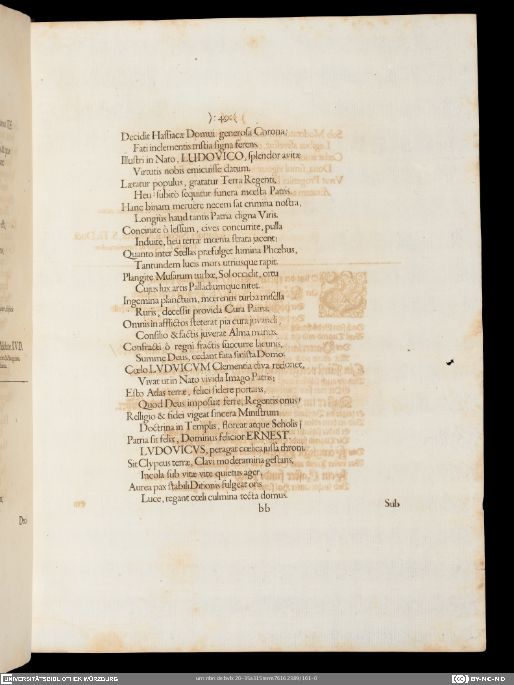 ):49:(
Decidit Hassiacæ Domui generosa Corona;
Fati inclementis tristia signa ferens.
Illustri in Nato, LUDOVICO, splendor avitæ
Virtutis nobis emicuisse datum.
Lætatur populus, gratatur Terra Regenti,
Heu! subitò sequitur funera mœsta Patris.
Hanc binam meruere necem sat crimina nostra,
Longius haud tantis Patria digna Viris.
Concinite ô lessum, cives concurrite, pulla
Induite, heu terræ mœnia strata jacent;
Quanto inter Stellas præfulget lumina Phœbus,
Tantundem lucis mors utriusque rapit.
Plangite Musarum turbæ, Sol occidit, ortu
Cujus lux artis Palladiumque nitet.
Ingemina planctum, mœrentis turba misella
Ruris, decessit provida Cura Patria.
Omnis in afflictos steterat pia cura juvandi;
Consilio & factis juverat Alma manus.
Confractis ô regni fractis succurre lacunis,
Summe Deus, cedant fata sinistra Domo;
Cœlo LVDVICVM Clementia diva reponet,
Vivat ut in Nato vivida Imago Patris;
Esto Atlas terræ, felici sidere portans,
Quod Deus imposuit ferre, Regentis onus!
Relligio & fidei vigeat sincera Ministrum
Doctrina in Templis, floreat atque Scholis!
Patria sit felix, Dominus felicior ERNEST.
LVDOVICVS, peragat cœlica jussa throni.
Sit Clypeus terræ, Clavi moderamina gestans,
Incola sub vite vitæ quietus ager,
Aurea pax stabili Ditionis fulgeat oris
Luce, regant cœli culmina tecta domus.
bb
Sub
Dro
UNIVERSITÄTSBIBLIOTHEK WÜRZBURG
BY-NC-ND